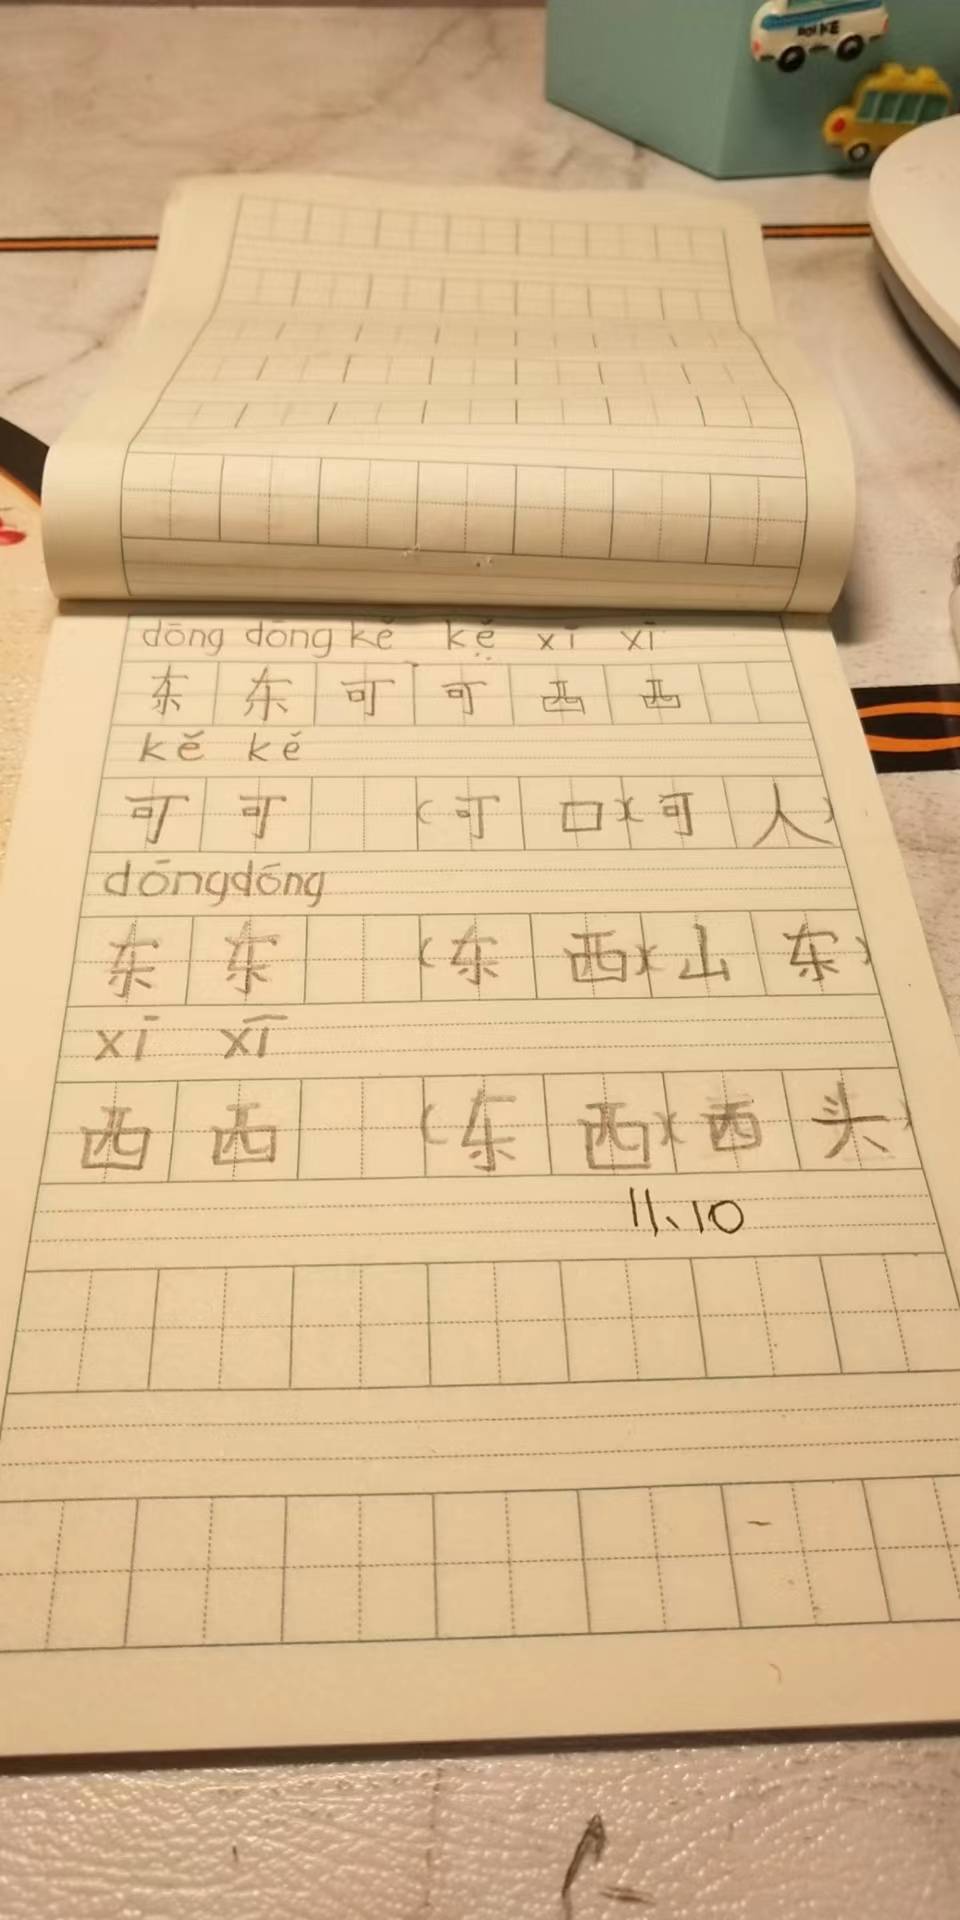 dōng dōng kě kě xī xī
东 东 可 可 西 西
kě kě
可 可 (可 口)(可 人)
dōngdōng
东 东 (东 西)(山 东)
xī xī
西 西 (东 西)(西 头)
11、10